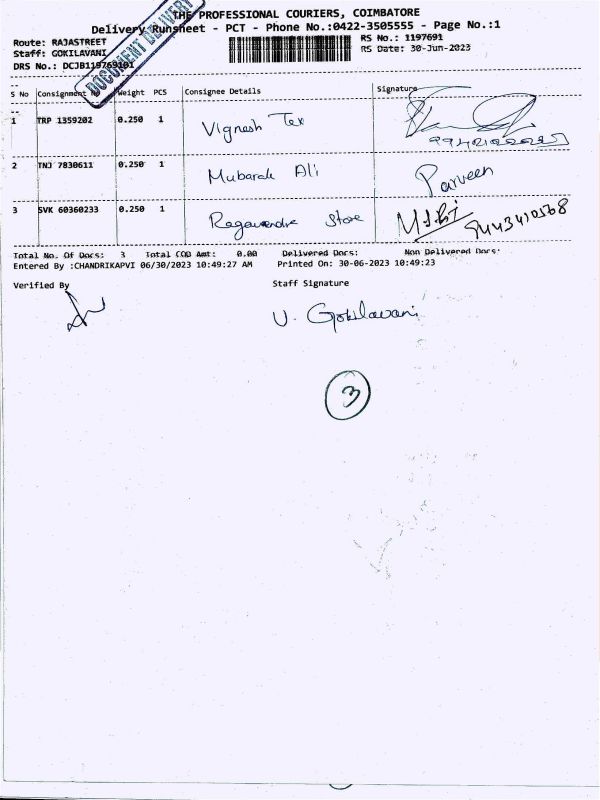 THE PROFESSIONAL COURIERS, COIMBATORE
Delivery Runsheet - PCT - Phone No.:0422-3505555 - Page No.:1
Route: RAJASTREET RS No.: 1197691
Staff: GOKILAVANI RS Date: 30-Jun-2023
DRS No.: DCJB119769101
DOCUMENT DELIVERY
S No Consignment No Weight PCS Consignee Details Signature
1 TRP 1359202 0.250 1 Vignesh Tex
2 TNJ 7830611 0.250 1 Mubarak Ali Parveen
3 SVK 60360233 0.250 1 Ragavendra Store
Total No. Of Docs: 3 Total COD Amt: 0.00 Delivered Docs: Non Delivered Docs:
Entered By :CHANDRIKAPVI 06/30/2023 10:49:27 AM Printed On: 30-06-2023 10:49:23
Verified By Staff Signature
V. Gokilavani
3